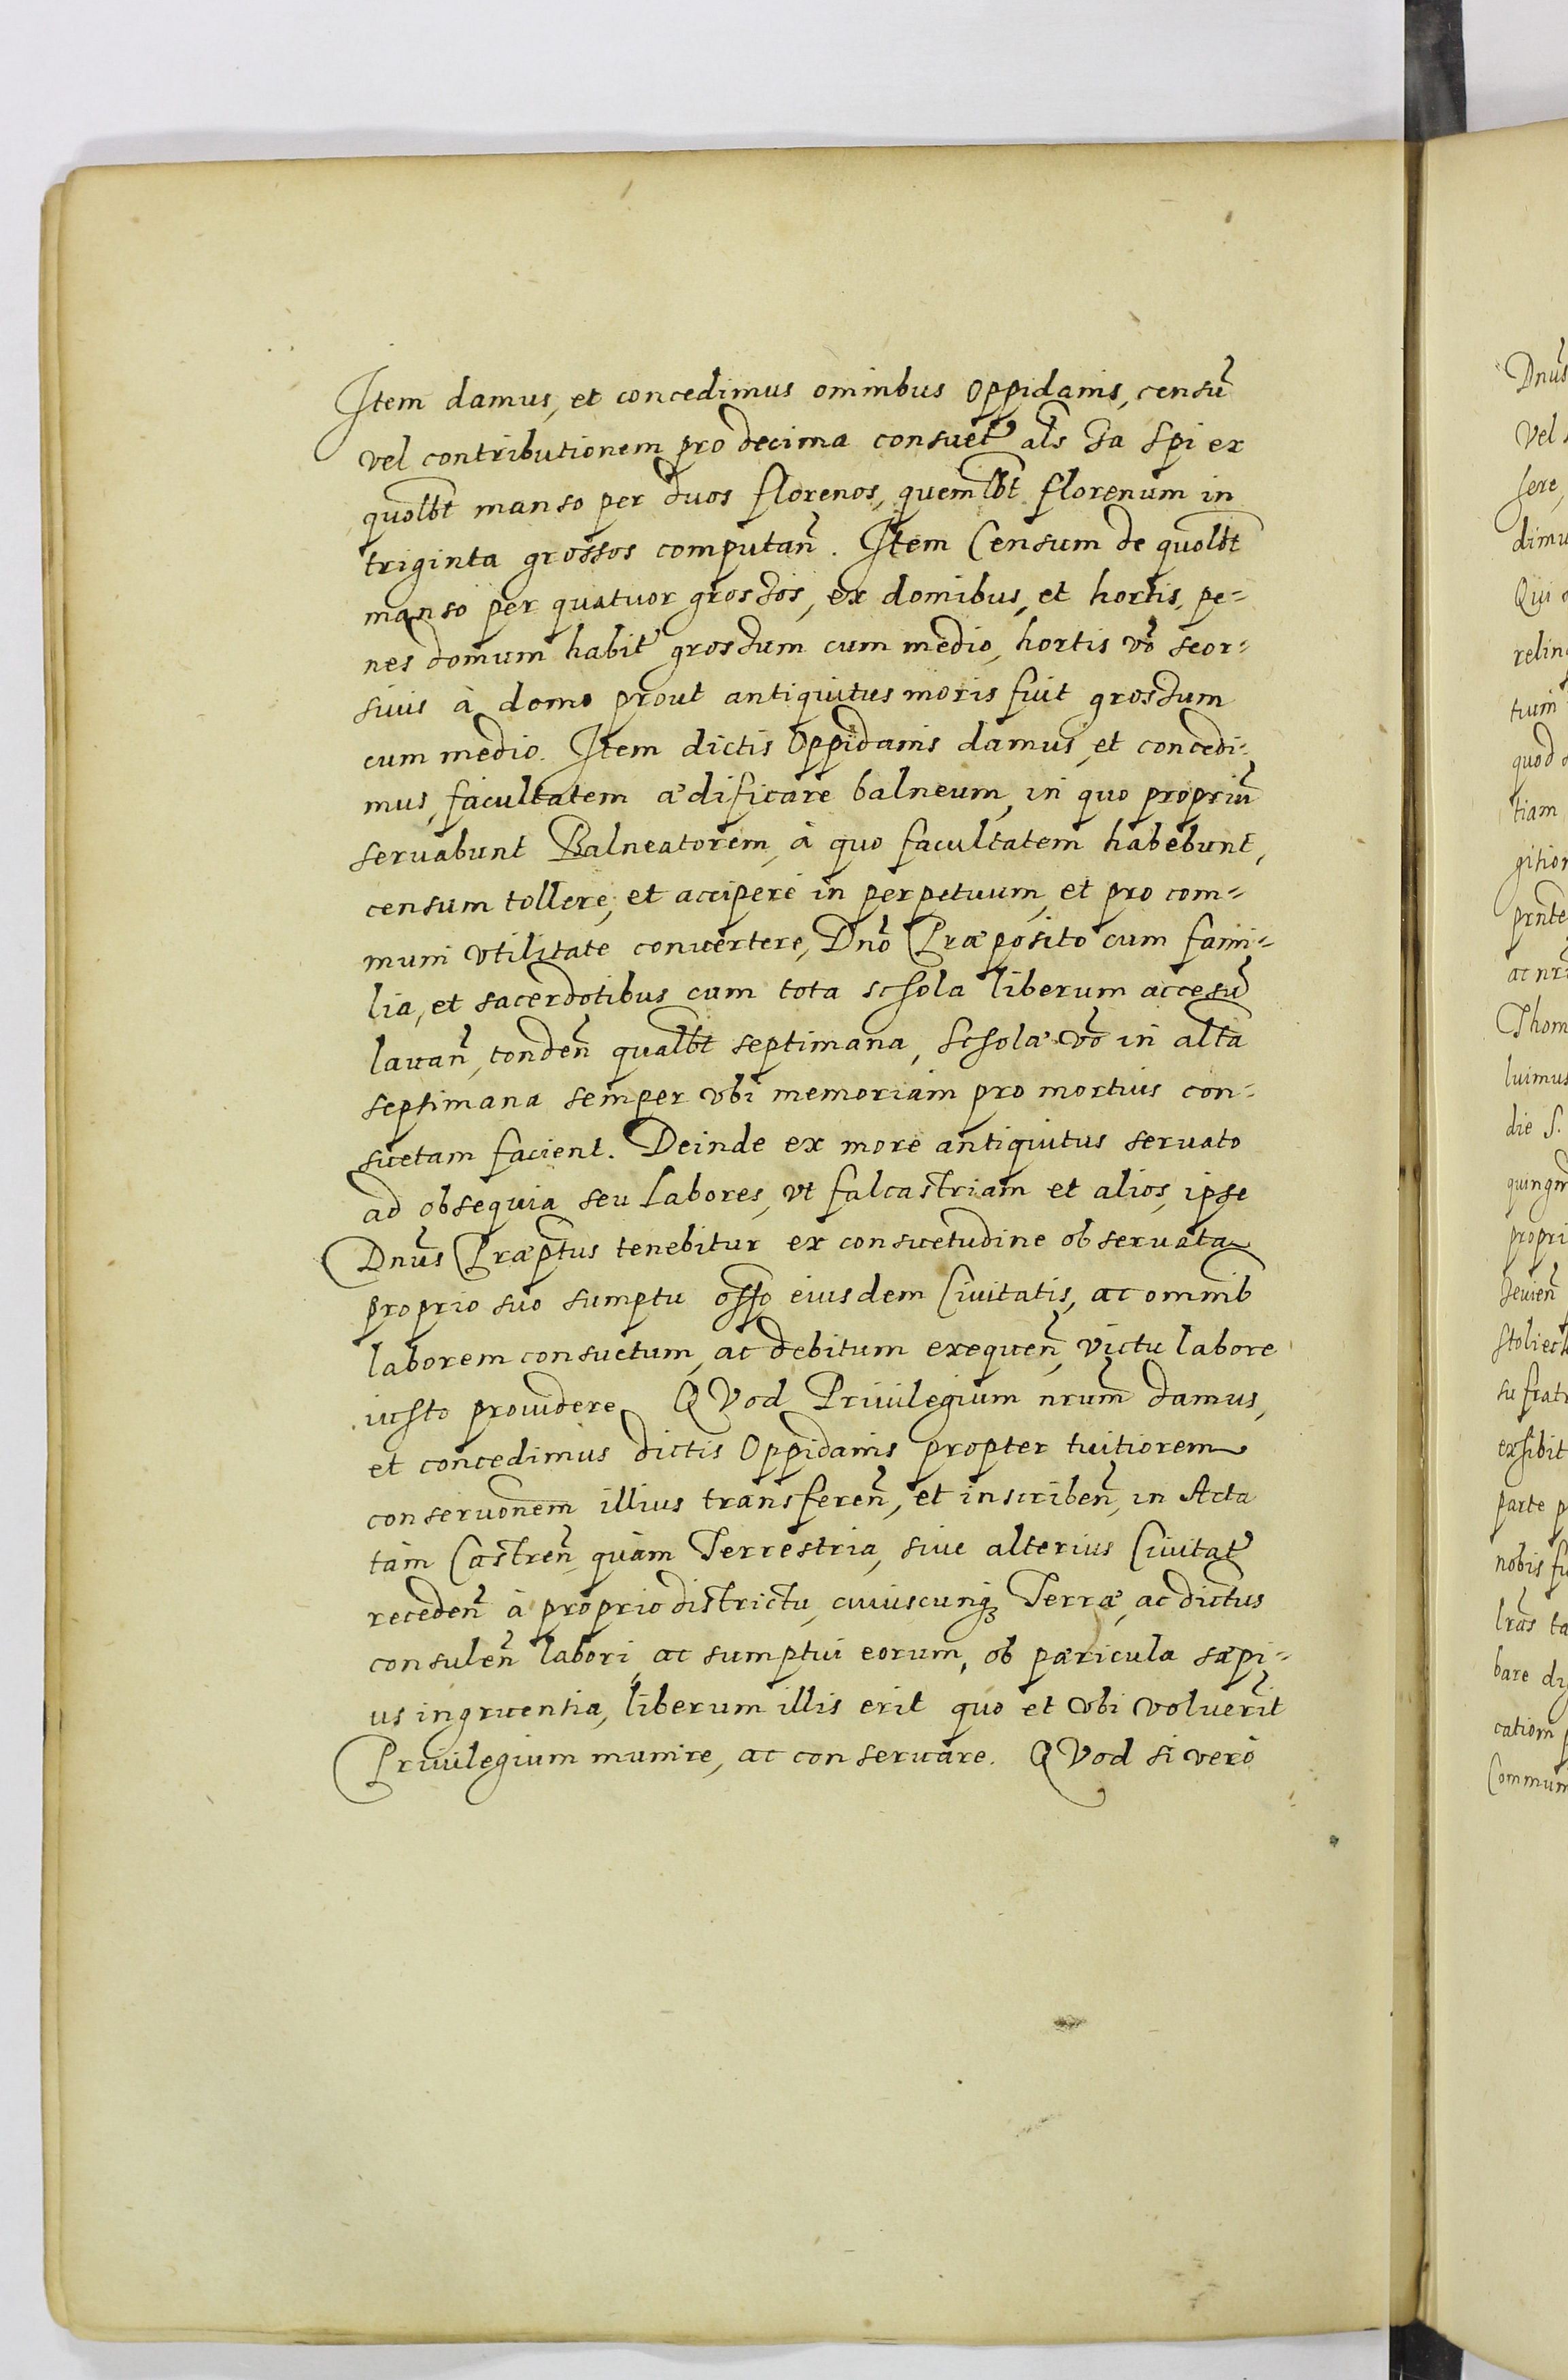 Item damus, et concedimus omnibus Oppidanis, censũ
vel contributionem pro decima consuet als Ja Spi ex
quolbt manso per duos florenos, quemlbt florenum in
triginta grossos computañ. Item Censum de quolbt
manso per quatuor grossos, ex domibus, et hortis, pe=
nes domum habit grossum cum medio, hortis vō seor=
sivis à domo prout antiquitus moris fuit grossum
cum medio. Item dictis Oppidanis damus, et concedi=
mus, facultatem ædificare balneum, in quo propriũ
seruabunt Balneatorem, à quo facultatem habebunt,
censum tollere, et accipere in perpetuum, et pro com=
muni vtilitate conuertere, Dnō Præposito cum fami=
lia, et sacerdotibus cum tota schola liberum accesũ
lauañ, tondeñ qualbt septimana, scholæ vō in alta
septimana semper vbi memoriam pro mortuis con=
suetam facient. Deinde ex more antiquitus seruato
ad obsequia seu Labores, vt falcastriam et alios, ipse
Dnūs Præptus tenebitur ex consuetudine obseruata
proprio suo sumptu eiusdem Ciuitatis, ac omnib
laborem consuetum, ac debitum exequeñ, victu labore
iusto prouidere. QVod Priuilegium nrum damus,
et concedimus dictis Oppidanis propter tuitiorem
conseruonem illius transfereñ, et inscribeñ, in Acta
tàm Castreñ quàm Terrestria, siue alterius Ciuitat
recedeñ à proprio districtu, cuiuscunqꝫ Terræ, ac dictus
consuleñ labori, ac sumptui eorum, ob pæricula sæpi=
us ingruentia, liberum illis erit quo et vbi voluerĩt
Priuilegium munire, ac conseruare. QVod si verò
Dnūs
Vel
sere,
dimu
Qui
relin
tium
quod
tiam
gition
prnte
ac nr̄
Thom
luimus
die S.
quing
propri
Seuieñ
Stoliec
su frat
exhibit
parte p
nobis fu
lrās ta
bare di
cationi
Commun